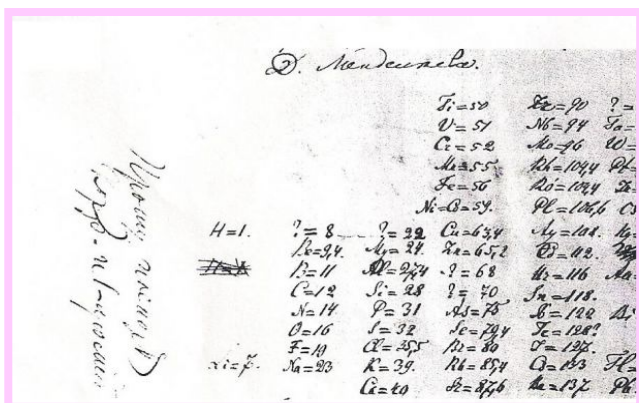 Д. Менделеев.
Ti=50 Zr=90 ?=
V=51 Nb=94 Ta=
Cr=52 Mo=96 W=
Mn=55 Rh=104,4 Pt=
Fe=56 Ru=104,4
Ni=Co=59. Pl=106,6
H=1. ?=8 ?=22 Cu=63,4 Ag=108.
Be=9,4 Mg=24. Zn=65,2 Cd=112.
B=11 Al=27,4 ?=68 Ur=116
C=12 Si=28 ?=70 Sn=118.
N=14 P=31 As=75 Sb=122 Bi
O=16 S=32 Se=79,4 Te=128?
F=19 Cl=35,5 Br=80 I=127.
Li=7. Na=23 K=39. Rb=85,4 Cs=133 Tl=
Ca=40 Sr=87,6 Ba=137 Pb